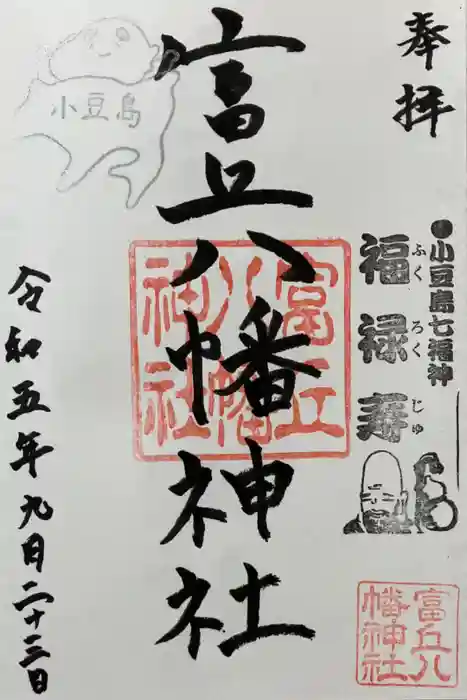 奉拝
●小豆島七福神
福禄寿
ふくろくじゅ
富丘八幡神社
富丘
八幡
神社
富丘八
幡神社
小豆島
令和五年九月二十三日